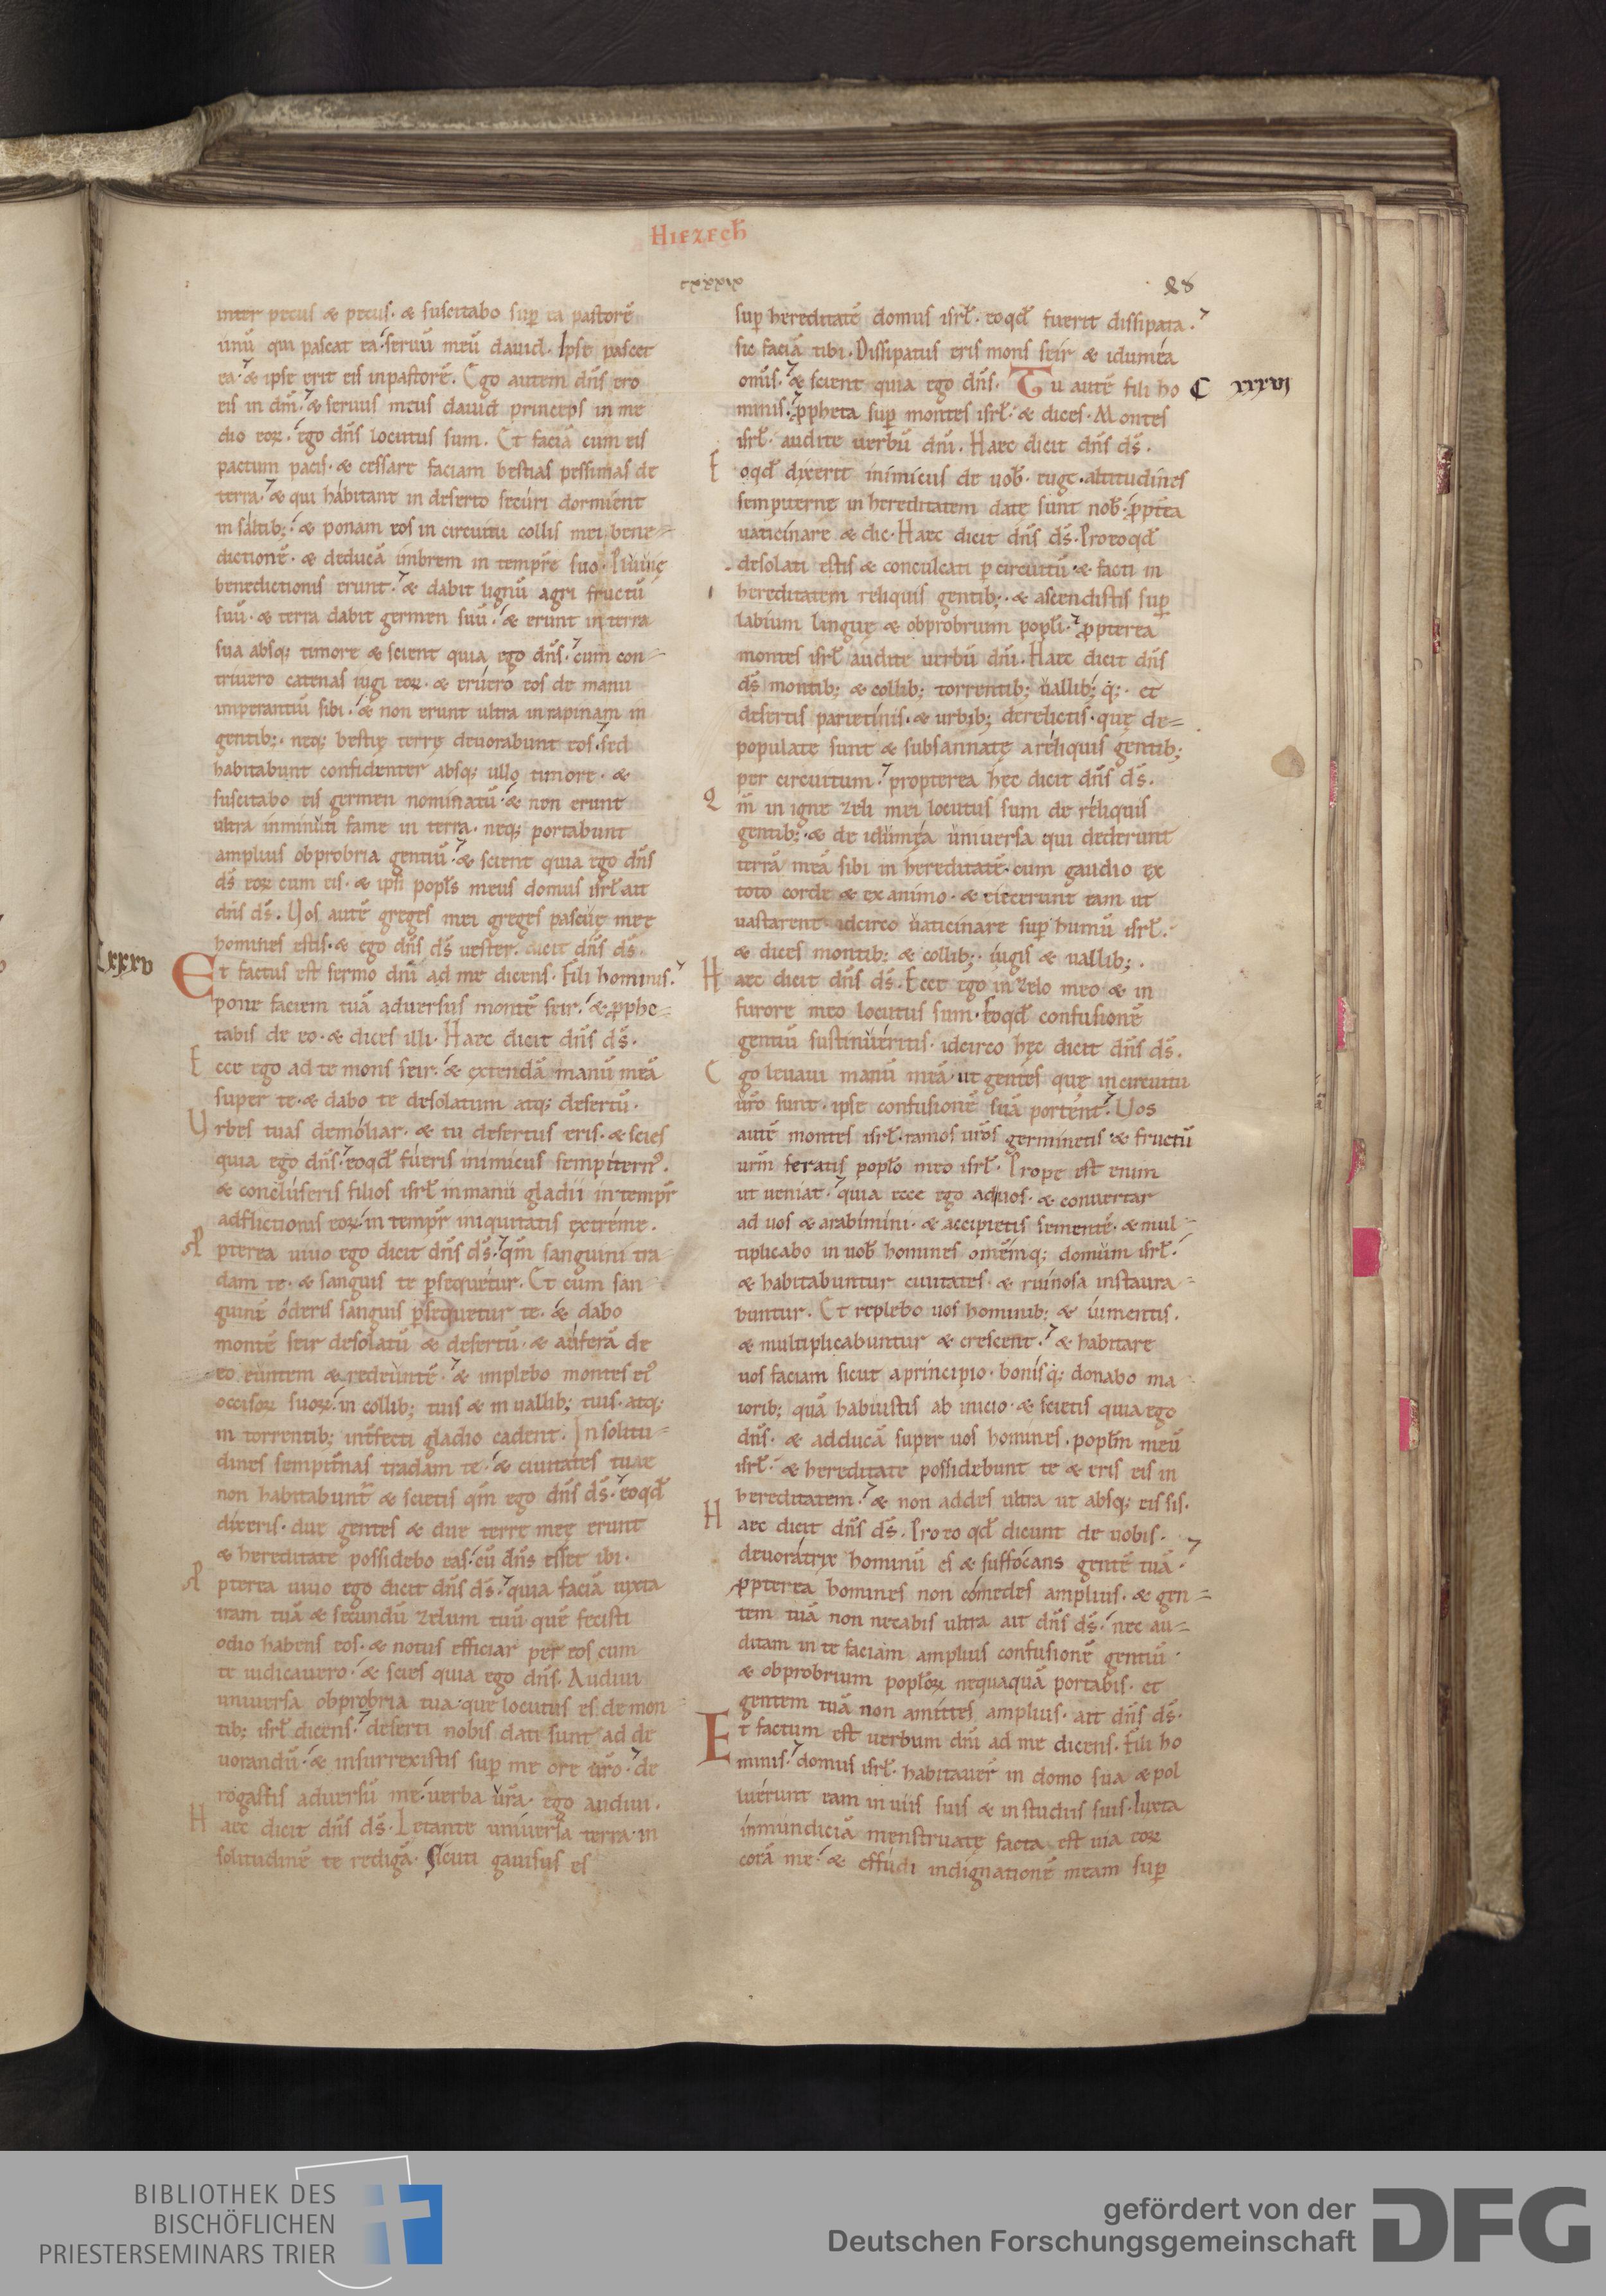 HIEZECH̄
cxxxix
inter pecus & pecus. & suscitabo sup̄ ea pastorē
unū qui pascat ea. seruū meū dauid. Ipse pascet
ea. & ipse erit eis in pastorē. Ego autem dn̄s ero
eis in dm̄. & seruus meus dauid princeps in me
dio eoꝝ. ego dn̄s locutus sum. Et faciā cum eis
pactum pacis. & cessare faciam bestias pessimas de
terra. & qui habitant in deserto securi dormient
in saltib;. & ponam eos in circuitu collis mei bene-
dictionē. & deducā imbrem in tempr̄e suo. Pluuię
benedictionis erunt. & dabit lignū agri fructū
suū. & terra dabit germen suū. & erunt in terra
sua absq; timore & scient quia ego dn̄s. cum con-
triuero catenas iugi eoꝝ. & eruero eos de manu
imperantiū sibi. & non erunt ultra in rapinam in
gentib;. neq; bestię terrę deuorabunt eos. sed
habitabunt confidenter absq; ullo timore. &
suscitabo eis germen nominatū. & non erunt
ultra inminuti fame in terra. neq; portabunt
amplius obprobria gentiū. & scient quia ego dn̄s
ds̄ eoꝝ cum eis. & ipsi popl̄s meus domus isrl̄ ait
dn̄s ds̄. Uos autē greges mei greges pascuę meę
homines estis. & ego dn̄s ds̄ uester. dicit dn̄s ds̄.
Lxxxv
Et factus est sermo dn̄i ad me dicens. Fili hominis.
pone faciem tuā aduersus montē seir. & ꝓphe-
tabis de eo. & dices illi. Haec dicit dn̄s ds̄.
Ecce ego ad te mons seir. & extendā manū meā
super te. & dabo te desolatum atq; desertū.
Urbes tuas demoliar. & tu desertus eris. & scies
quia ego dn̄s. eoqd̄ fueris inimicus sempitern⁹.
& concluseris filios isrl̄ in manu gladii in tempr̄
adflictionis eoꝝ. in tempr̄ iniquitatis extreme.
Ꝓpterea uiuo ego dicit dn̄s ds̄. qm̄ sanguini tra-
dam te. & sanguis te ꝑsequetur. Et cum san-
guinē oderis sanguis ꝑsequetur te. & dabo
montē seir desolatū & desertū. & auferā de
eo euntem & redeuntē. & implebo montes ei⁹
occisoꝝ suoꝝ. in collib; tuis & in uallib; tuis. atq;
in torrentib; int̄fecti gladio cadent. In solitu-
dines sempit̄nas tradam te. & ciuitates tuae
non habitabunt̄ & scietis qm̄ ego dn̄s ds̄. eoqd̄
dixeris. due gentes & due terre meę erunt
& hereditate possidebo eas. cū dn̄s esset ibi.
Ꝓpterea uiuo ego dicit dn̄s ds̄. quia faciā iuxta
iram tuā & secundū zelum tuū quē fecisti
odio habens eos. & notus efficiar per eos cum
te iudicauero. & scies quia ego dn̄s. Audiui
uniuersa obprobria tua. que locutus es de mon
tib; isrl̄ dicens. deserti nobis dati sunt ad de
uorandū. & insurrexistis sup̄ me ore ur̄o. de
rogastis aduersū me. uerba ur̄a. ego audiui.
Haec dicit dn̄s ds̄. Letante uniuersa terra. in
solitudinē te redigā. Sicuti gauisus es
sup̄ hereditatē domus isrl̄. eoqd̄ fuerit dissipata.
sic faciā tibi. Dissipatus eris mons seir & idumea
omis̄. & scient quia ego dn̄s. Tu autē fili ho C xxxvj
minis. ꝓpheta sup̄ montes isrl̄. & dices. Montes
isrl̄ audite uerbū dn̄i. Haec dicit dn̄s ds̄.
Eoqd̄ dixerit inimicus de uob̄. euge. altitudines
sempiterne in hereditatem date sunt nob̄. ꝓpt̄ea
uaticinare & dic. Haec dicit dn̄s ds̄. Proeoqd̄
desolati estis & conculcati ꝑ circuitū. & facti in
hereditatem reliquis gentib;. & ascendistis sup̄
labium linguę & obprobrium popl̄i. ꝓpterea
montes isrl̄ audite uerbū dn̄i. Haec dicit dn̄s
ds̄ montib; & collib; torrentib; uallib; q;. et
desertis parietinis. & urbib; derelictis. quę de-
populate sunt & subsannatę a reliquis gentib;
per circuitum. propterea hęc dicit dn̄s ds̄.
Qm̄ in igne zeli mei locutus sum de reliquis
gentib;. & de idumęa uniuersa qui dederunt
terrā meā sibi in hereditatē. cum gaudio ex
toto corde & ex animo. & eiecerunt eam ut
uastarent. idcirco uaticinare sup̄ humū isrl̄.
& dices montib; & collib;. iugis & uallib;.
Haec dicit dn̄s ds̄. Ecce ego in zelo meo & in
furore meo locutus sum. Eoqd̄ confusionē
gentiū sustinueritis. idcirco hęc dicit dn̄s ds̄.
Ego leuaui manū meā. ut gentes quę in circuitu
ur̄o sunt. ipse confusionē suā portent. Uos
autē montes isrl̄. ramos ur̄os germinetis. & fructū
urm̄ feratis popl̄o meo isrl̄. Prope est enim
ut ueniat. quia ecce ego ad uos. & conuertar
ad uos & arabimini. & accipietis sementē. & mul-
tiplicabo in uob̄ homines omēmq; domum isrl̄.
& habitabuntur ciuitates. & ruinosa instaura-
buntur. Et replebo uos hominib; & iumentis.
& multiplicabuntur & crescent. & habitare
uos faciam sicut a principio. bonisq; donabo ma
iorib; quā habuistis ab inicio. & scietis quia ego
dn̄s. & adducā super uos homines. popl̄m meū
isrl̄. & hereditate possidebunt te & eris eis in
hereditatem. & non addes ultra ut absq; eis sis.
Haec dicit dn̄s ds̄. Proeo qd̄ dicunt de uobis.
deuoratrix hominū es & suffocans gentē tuā.
ꝓpterea homines non comedes amplius. & gen-
tem tuā non necabis ultra ait dn̄s ds̄. nec au-
ditam in te faciam amplius confusionē gentiū.
& obprobrium popl̄oꝝ nequaquā portabis. et
gentem tuā non amittes amplius. ait dn̄s ds̄.
Et factum est uerbum dn̄i ad me dicens. Fili ho
minis. domus isrl̄. habitauer̄ in domo sua & pol
luerunt eam in uiis suis & in studiis suis. Iuxta
inmundiciā menstruatę facta est uia eoꝝ
corā me. & effudi indignationē meam sup̄
BIBLIOTHEK DES
BISCHÖFLICHEN
PRIESTERSEMINARS TRIER
gefördert von der
Deutschen Forschungsgemeinschaft
DFG